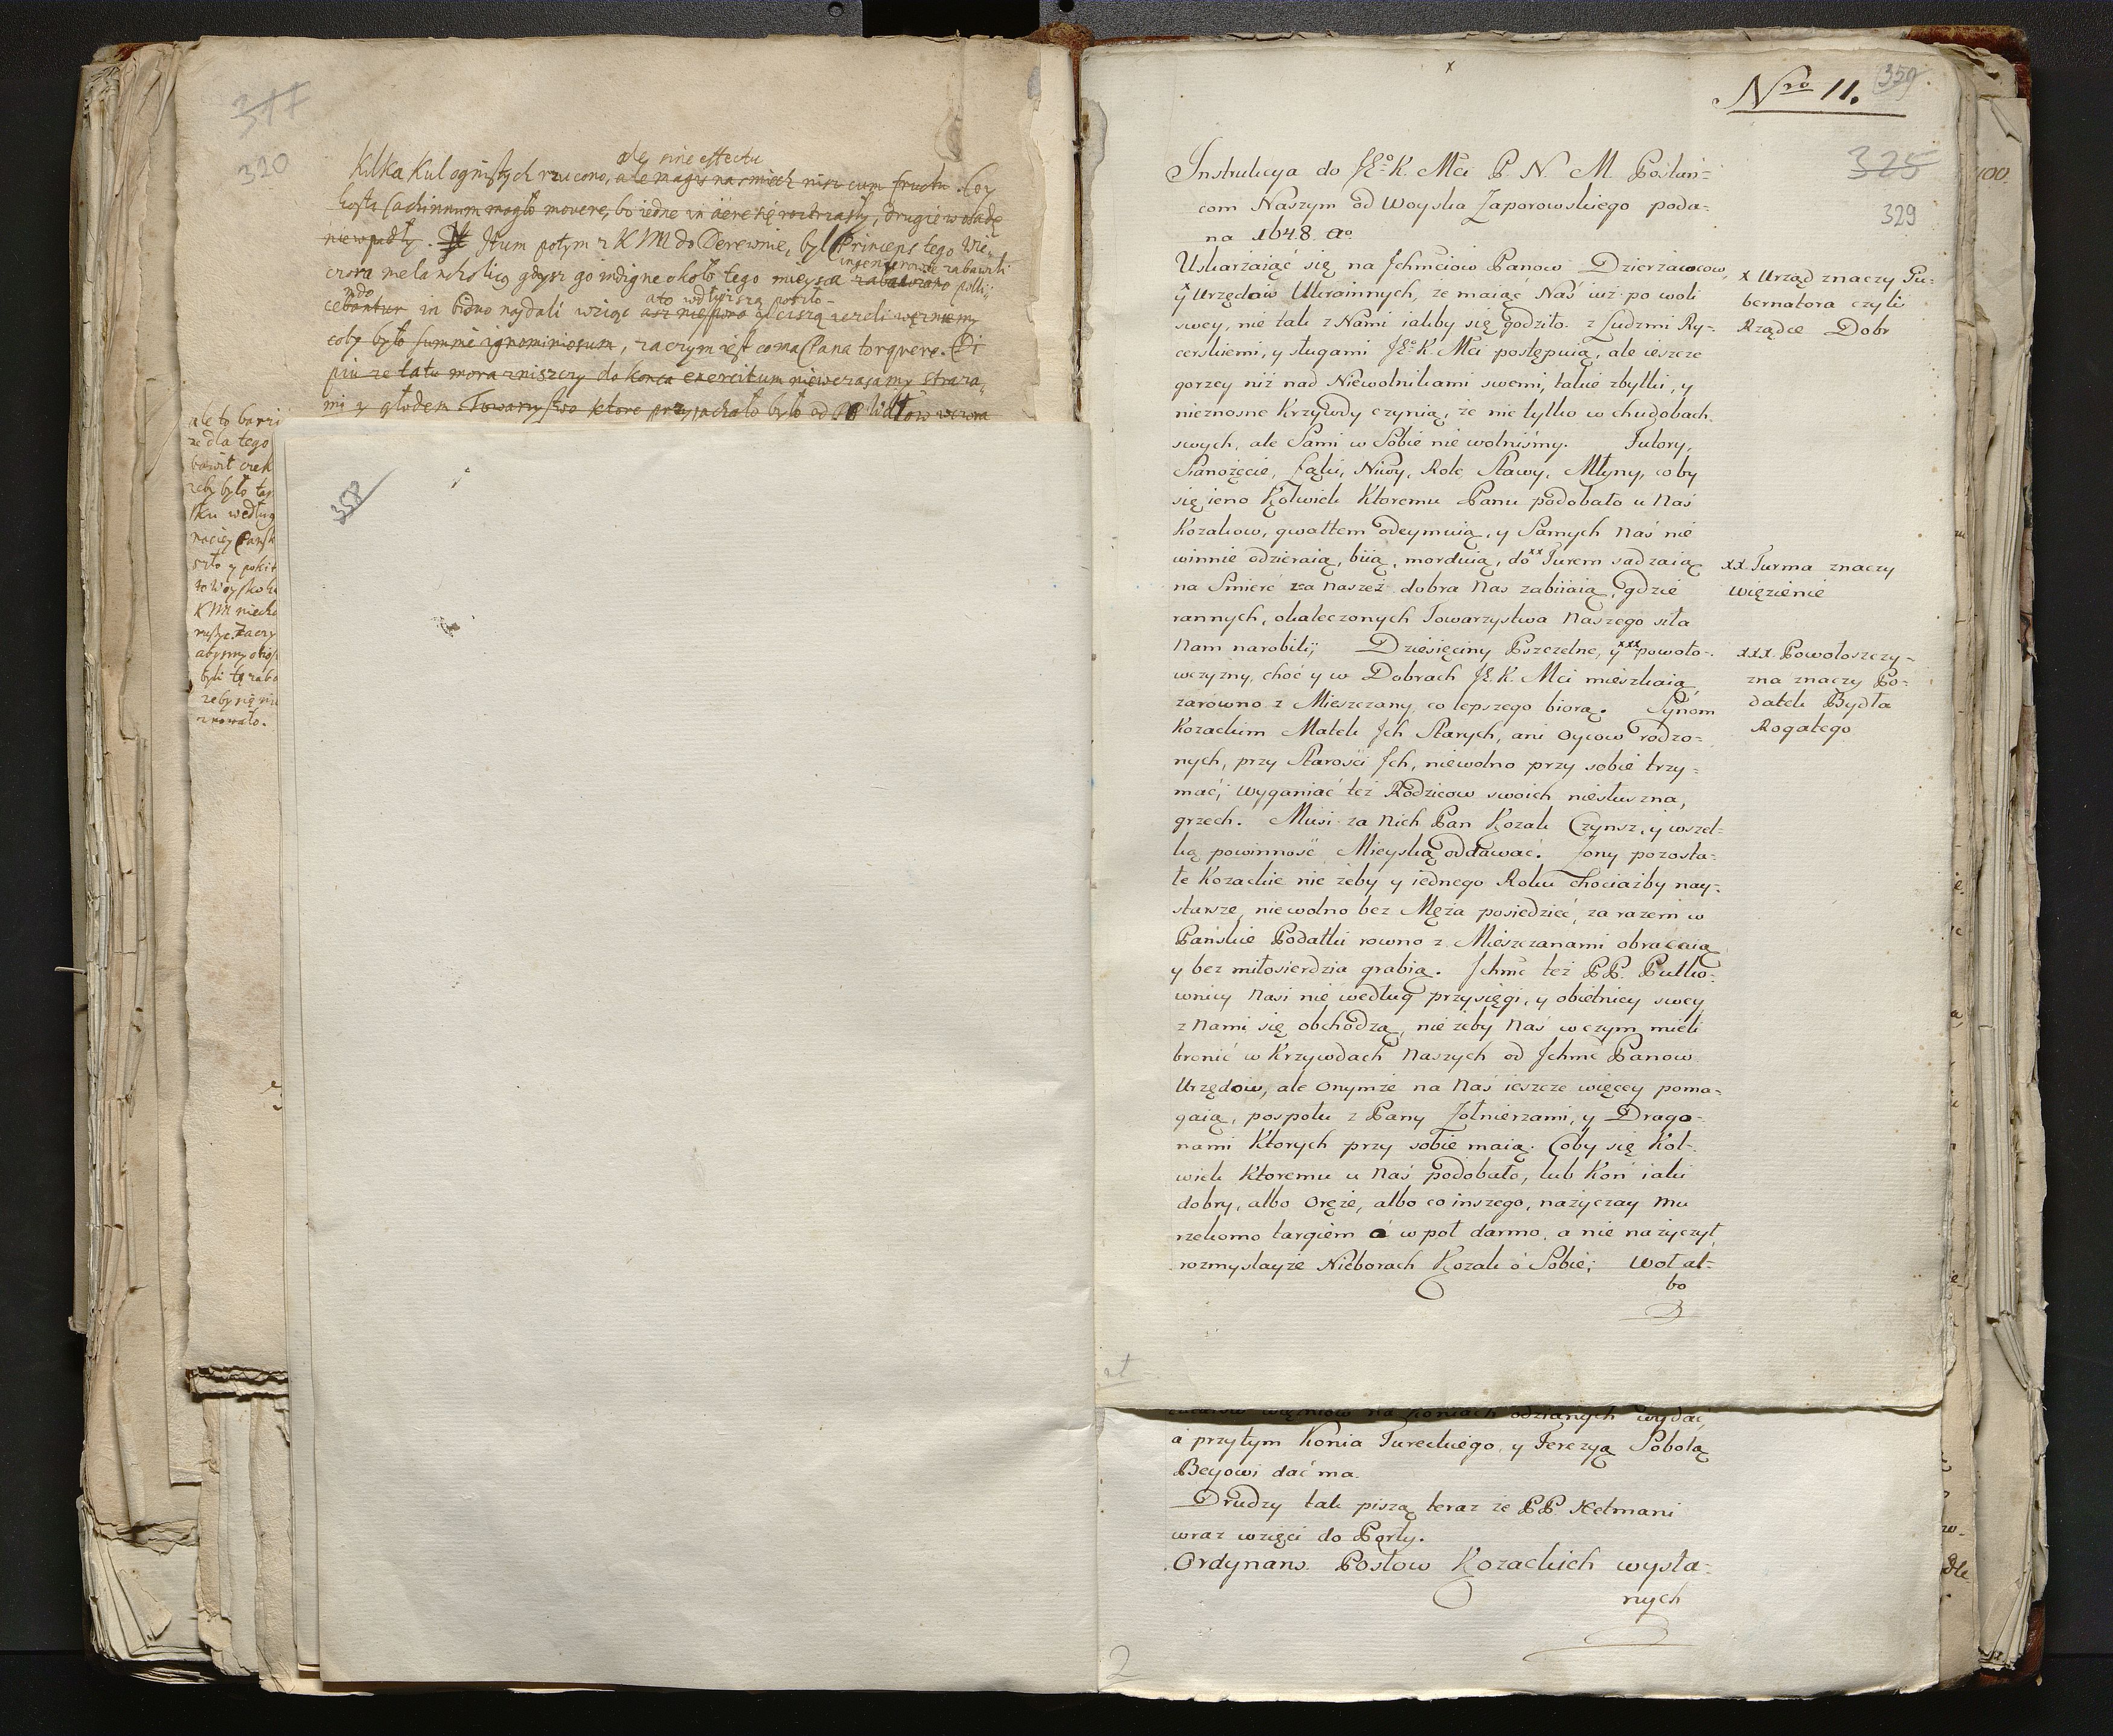 317
320
Kilka Kul ognistych rzucono, ale magis na smiech nisz cum fructu. Coy
ale sine effectu
kosta Cachinnum mogło movere, bo iedne in äere się roztrzasły, drugie w wodę
nie wpadły. Jtum potym z KJM do Derewnie, był Princeps tego Wie-
czora melancholicg gdysz go indigne około tego mieysca zabawiano polli-
ingenierowie zabawili
cebantur in bidno naydali wziąc asz nie
eoby było summe ignominiosum, zaczym iest co ma Pana torquere. Di
piu ze lato mora zniszczy do konca exercitum niewczasamy straza-
mi y głodem Towarzystwo ktore przyjachało było od
ale to barzi
ze dla tego
bawił czek
zeby było
sku według
naciey Pansk
szło y pokit
to Woysko
KJM niech
abysmy
byli tę zaba
zeby się nie
358
Nro 11.
359
325
329
Instrukcya do JEº K. Mci P. N. M. Posłań-
com Naszym od Woyska Zaporowskiego poda-
na 1648 Aº
Uskarżaiąć się na Jchmciow Panow Dzierżawcow,
y Urzędow Ukrainnych, że maiąć Naś iuż po woli
swey, nie tak z Nami iakby się godziło z Ludzmi Ry-
cerskiemi, y sługami JEº K. Mci postępuią, ale ieszcze
gorzey niż nad Niewolnikami swemi, takie zbytki, y
nieznosne Krzywdy czynią, że nie tylko w chudobach
swych, ale Sami w Sobie nie wolniśmy. Futory,
Sianożęcie, Łąki, Niwy, Role, Stawy, Młyny, co by
się ieno Kolwiek Ktoremu Panu podobało u Naś
Kozakow, gwałtem odeymuią, y Samych Naś nie
winnie odzieraią, biią, morduią, do xx Turem sadzaią
na Smierć za Naszeż dobra Nas zabiiaią, gdzie
rannych, okaleczonych Towarzystwa Naszego siła
Nam narobili; Dziesięciny Pszczelne, y xxx powoło-
wczyzny, choć y w Dobrach JE. K. Mci mieszkaią
zarowno z Mieszczany, co lepszego biorą. Synom
Kozackim Matek Jch Starych, ani Oycow rodzo-
nych, przy Starości Jch, niewolno przy sobie trzy-
mać, Wyganiać też Rodzicow swoich niesłuszna,
grzech. Musi za Nich Pan Kozak Czynsz, y wszel-
ką powinność Mieyską oddawać. Żony pozosta-
łe Kozackie nie żeby y iednego Roku chociażby nay-
starsze, niewolno bez Męża posiedzieć, zarazem w
Pańskie Podatki rowno z Mieszczanami obracaią
y bez miłosierdzia grabią. Jchmć też PP. Putko-
wnicy Nasi nie według przysięgi, y obietnicy swey
z Nami się obchodzą, nie żeby Naś w czym mieli
bronić w Krzywdach Naszych od Jchmć Panow
Urzędow, ale Onymże na Naś ieszcze więcey poma-
gaią, pospołu z Pany Żołnierzami, y Drago-
nami Ktorych przy sobie maią. Coby się Kol-
wiek Ktoremu u Naś podobało, lub Koń iaki
dobry, albo Oręże, albo co inszego, nażyczay mu
rzekomo targiem á w poł darmo, a nie nażyczył,
rozmyslayże Nieborach Kozak o Sobie; Woł al-
bo
x Urząd znaczy Gu-
bernatora czyli
Rządce Dobr
xx Turma znaczy
Więzienie
xxx Powołoszczy-
zna znaczy Po-
datek Bydła
Rogatego
więzniow na koniach odzianych wydać,
a przytym Konia Tureckiego, y Ferezyą Sobolą
Beyowi dać ma.
Drudzy tak piszą teraz że PP. Hetmani
wraz wzięci do Porty.
Ordynans Posłow Kozackich wysła-
nych
2